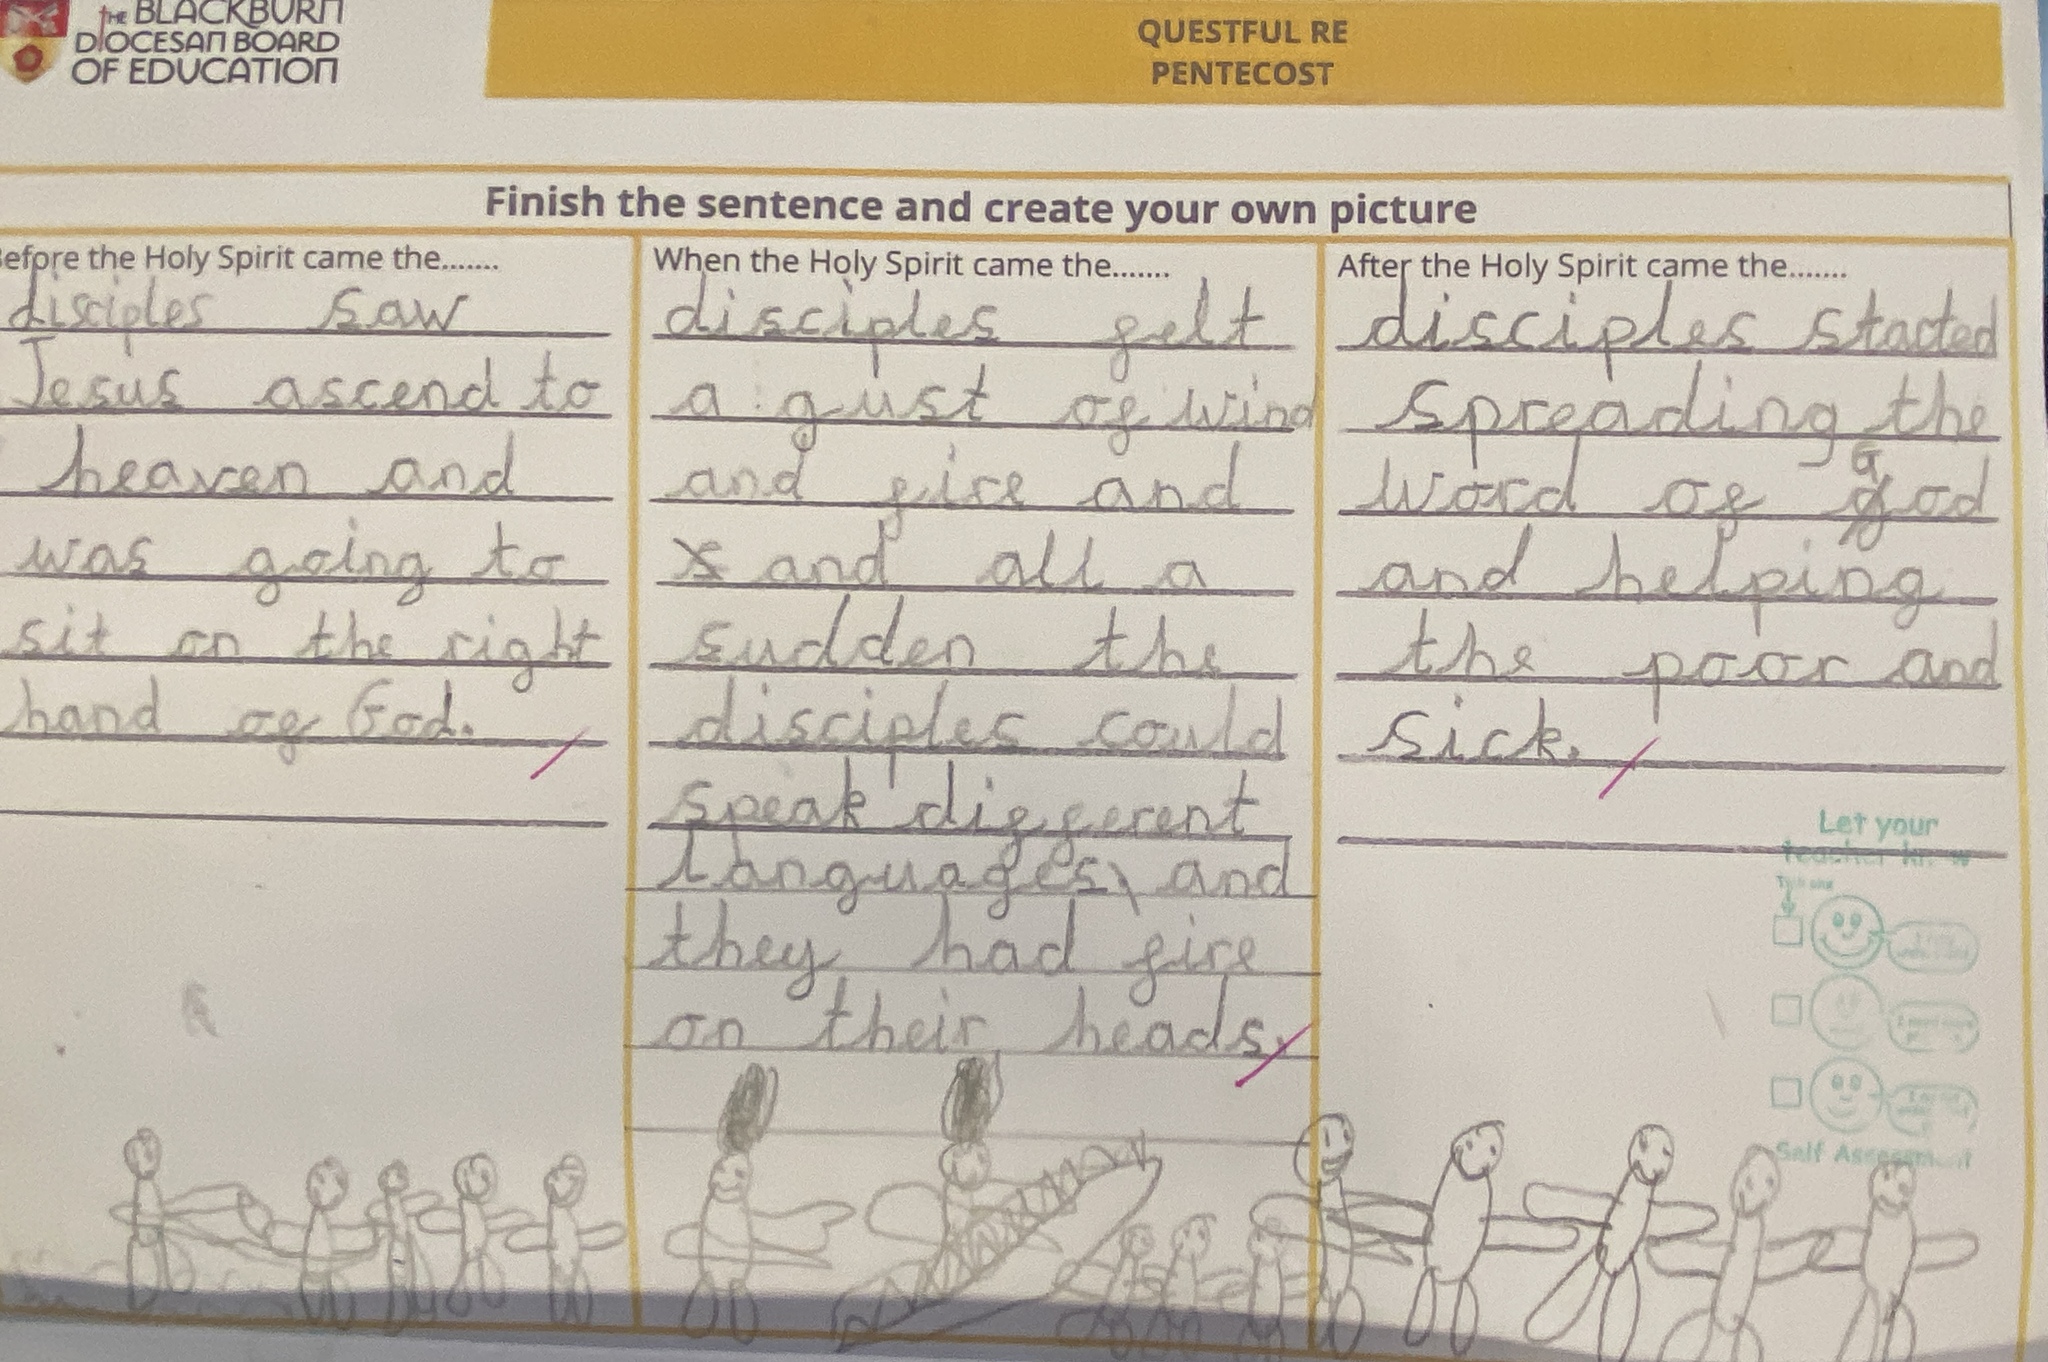 THE BLACKBURN
DIOCESAN BOARD
OF EDUCATION
QUESTFUL RE
PENTECOST
Finish the sentence and create your own picture
Before the Holy Spirit came the.......
disciples saw
Jesus ascend to
heaven and
was going to
sit on the right
hand of God.
When the Holy Spirit came the.......
disciples felt
a gust of wind
and fire and
and all a
sudden the
disciples could
speak different
languages, and
they had fire
on their heads.
After the Holy Spirit came the.......
disciples started
spreading the
word of God
and helping
the poor and
sick.
Let your
teacher know
Self Assessment